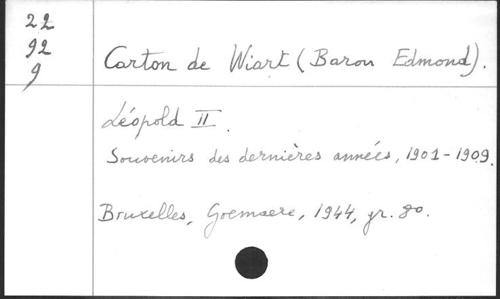 22
92
9
Carton de Wiart (Baron Edmond).
Léopold II.
Souvenirs des dernières années, 1901-1909.
Bruxelles, Goemaere, 1944, gr. 8o.